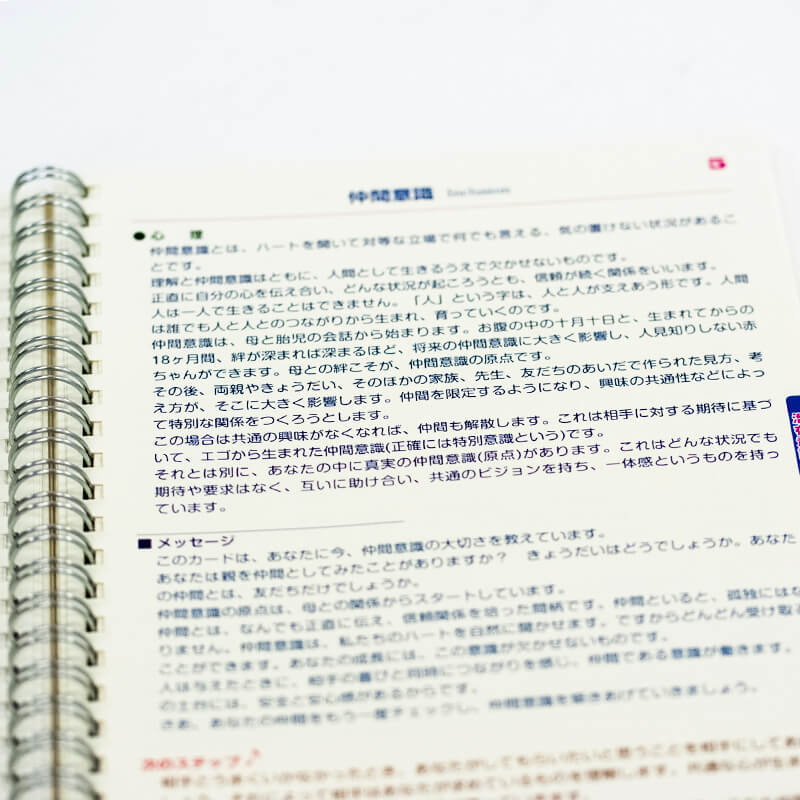 仲間意識
●心 理
仲間意識とは、ハートを開いて対等な立場で何でも言える、気の置けない状況があるこ
とです。
理解と仲間意識はともに、人間として生きるうえで欠かせないものです。
正直に自分の心を伝え合い、どんな状況が起ころうとも、信頼が続く関係をいいます。
人は一人で生きることはできません。「人」という字は、人と人が支えあう形です。人間
は誰でも人と人とのつながりから生まれ、育っていくのです。
仲間意識は、母と胎児の会話から始まります。お腹の中の十月十日と、生まれてからの
18ヶ月間、絆が深まれば深まるほど、将来の仲間意識に大きく影響し、人見知りしない赤
ちゃんができます。母との絆こそが、仲間意識の原点です。
その後、両親やきょうだい、そのほかの家族、先生、友だちのあいだで作られた見方、考
え方が、そこに大きく影響します。仲間を限定するようになり、興味の共通性などによっ
て特別な関係をつくろうとします。
この場合は共通の興味がなくなれば、仲間も解散します。これは相手に対する期待に基づ
いて、エゴから生まれた仲間意識(正確には特別意識という)です。
それとは別に、あなたの中に真実の仲間意識(原点)があります。これはどんな状況でも
期待や要求はなく、互いに助け合い、共通のビジョンを持ち、一体感というものを持っ
ています。
■メッセージ
このカードは、あなたに今、仲間意識の大切さを教えています。
あなたは親を仲間としてみたことがありますか？ きょうだいはどうでしょうか。あなた
の仲間とは、友だちだけでしょうか。
仲間意識の原点は、母との関係からスタートしています。
仲間とは、なんでも正直に伝え、信頼関係を培った間柄です。仲間といると、孤独にはな
りません。仲間意識は、私たちのハートを自然に開かせます。ですからどんどん受け取る
ことができます。あなたの成長には、この意識が欠かせないものです。
人は与えたときに、相手の喜びと同時につながりを感じ、仲間である意識が働きます。
の土台には、安全と安心感があるからです。
さあ、あなたの仲間をもう一度チェックし、仲間意識を築きあげていきましょう。
相手とうまくいかなかったとき、あなたがしてもらいたいと思うことを相手にしてあ